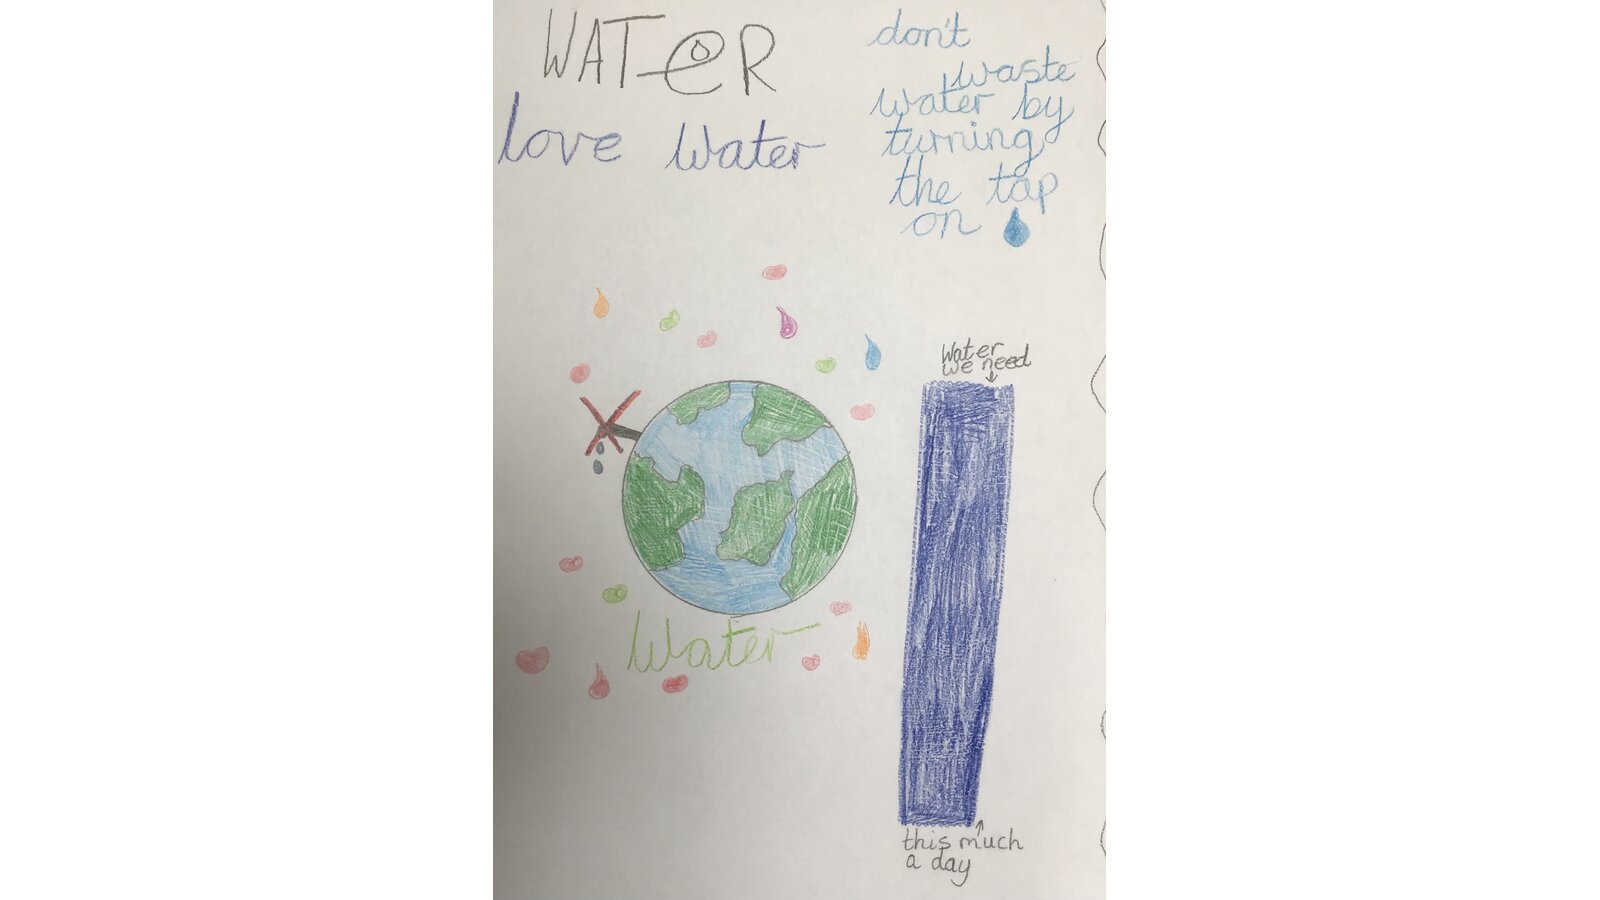 WATeR
love Water
don't
waste
water by
turning
the tap
on
Water
we need
Water
this much
a day